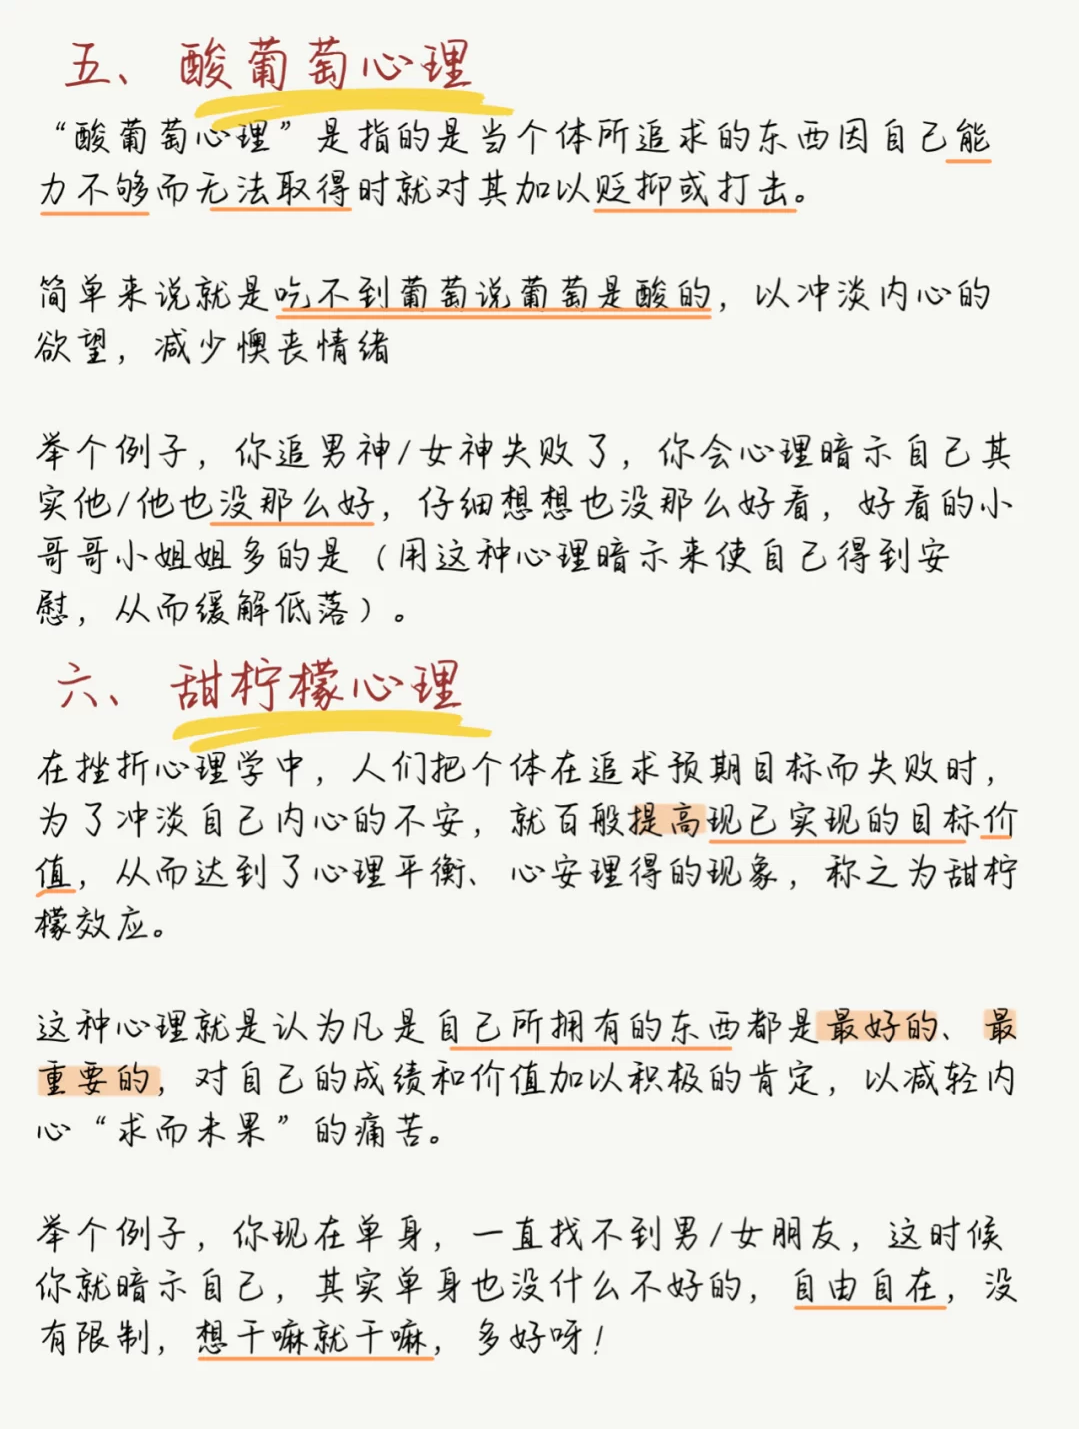 五、酸葡萄心理
“酸葡萄心理”是指的是当个体所追求的东西因自己能
力不够而无法取得时就对其加以贬抑或打击。
简单来说就是吃不到葡萄说葡萄是酸的，以冲淡内心的
欲望，减少懊丧情绪
举个例子，你追男神/女神失败了，你会心理暗示自己其
实他/他也没那么好，仔细想想也没那么好看，好看的小
哥哥小姐姐多的是（用这种心理暗示来使自己得到安
慰，从而缓解低落）。
六、甜柠檬心理
在挫折心理学中，人们把个体在追求预期目标而失败时，
为了冲淡自己内心的不安，就百般提高现已实现的目标价
值，从而达到了心理平衡、心安理得的现象，称之为甜柠
檬效应。
这种心理就是认为凡是自己所拥有的东西都是最好的、最
重要的，对自己的成绩和价值加以积极的肯定，以减轻内
心“求而未果”的痛苦。
举个例子，你现在单身，一直找不到男/女朋友，这时候
你就暗示自己，其实单身也没什么不好的，自由自在，没
有限制，想干嘛就干嘛，多好呀！